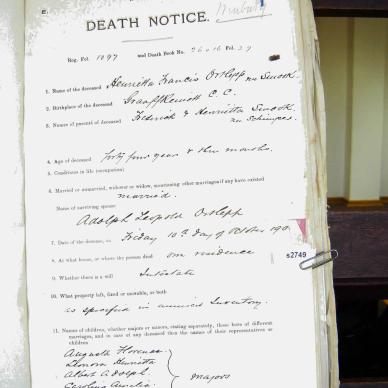 E.
DEATH NOTICE.
Reg. Fol. 1097 and Death Book No. Fol. 29
1. Name of the deceased Henrietta Francis Ortlepp née Smook.
2. Birthplace of the deceased Graaff Reinett C. C.
3. Names of parents of deceased Frederick & Henrietta Smook.
née
4. Age of deceased forty four years & three months.
5. Condition in life (occupation)
6. Married or unmarried, widower or widow, mentioning other marriages if any have existed
married.
Name of surviving spouse
Adolph Leopold Ortlepp
7. Date of the decease, on Friday 10th day of October
8. At what house, or where the person died own residence
9. Whether there is a will Intestate
s2749
10. What property left, fixed or movable, or both
as specified in annexed Inventory.
11. Names of children, whether majors or minors, stating separately, those born of different
marriages, and in case any of them deceased then the names of their representatives or
children
Augusta Florence
Leonora Henrietta
Albert Adolph.
Caroline Amelia
majors